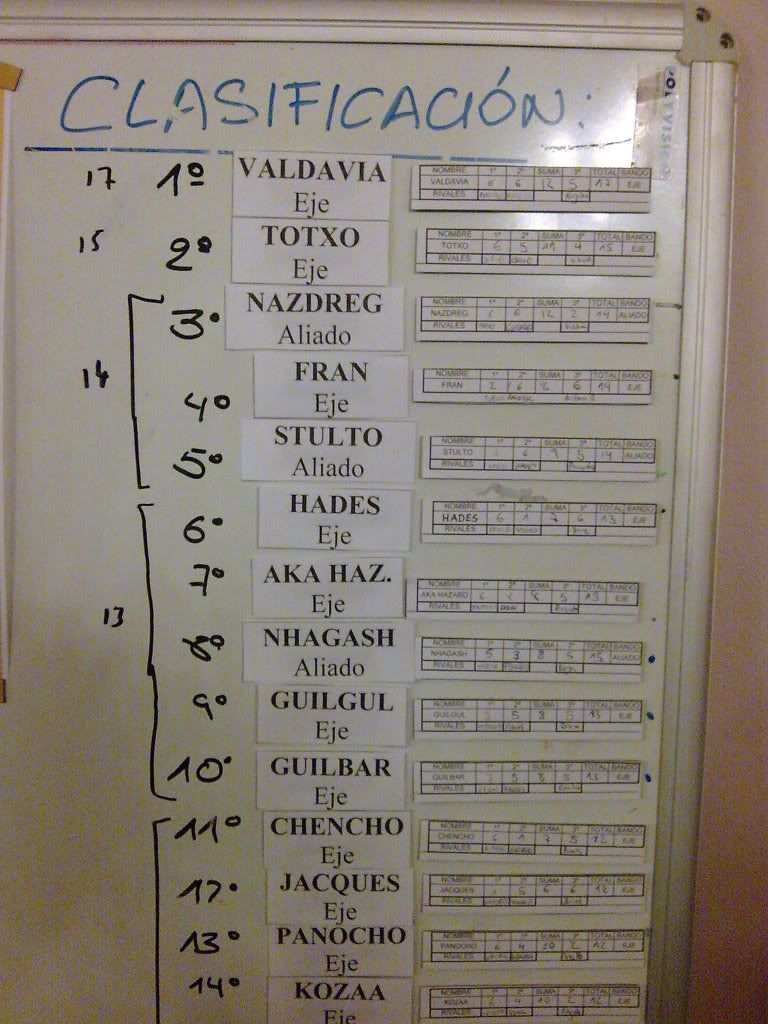 CLASIFICACIÓN:
17 1º VALDAVIA
Eje
NOMBRE 1ª 2ª SUMA 3ª TOTAL BANDO
VALDAVIA 6 6 12 5 17 EJE
RIVALES
15 2º TOTXO
Eje
NOMBRE 1ª 2ª SUMA 3ª TOTAL BANDO
TOTXO 6 5 11 4 15 EJE
RIVALES
14
3º NAZDREG
Aliado
NOMBRE 1ª 2ª SUMA 3ª TOTAL BANDO
NAZDREG 6 12 2 14 ALIADO
RIVALES
4º FRAN
Eje
NOMBRE 1ª 2ª SUMA 3ª TOTAL BANDO
FRAN 2 6 8 6 14 EJE
5º STULTO
Aliado
NOMBRE 1ª 2ª SUMA 3ª TOTAL BANDO
STULTO 6 9 5 14 ALIADO
RIVALES
13
6º HADES
Eje
NOMBRE 1ª 2ª SUMA 3ª TOTAL BANDO
HADES 6 1 7 6 13 EJE
RIVALES
7º AKA HAZ.
Eje
NOMBRE 1ª 2ª SUMA 3ª TOTAL BANDO
AKA HAZARD 6 8 5 13 EJE
RIVALES
8º NHAGASH
Aliado
NOMBRE 1ª 2ª SUMA 3ª TOTAL BANDO
NHAGASH 5 3 8 5 ALIADO
RIVALES
9º GUILGUL
Eje
NOMBRE 1ª 2ª SUMA 3ª TOTAL BANDO
GUILGUL 5 8 13 EJE
RIVALES
10º GUILBAR
Eje
NOMBRE 1ª 2ª SUMA 3ª TOTAL BANDO
GUILBAR 3 5 8 5 13 EJE
RIVALES
11º CHENCHO
Eje
NOMBRE 1ª 2ª SUMA 3ª TOTAL BANDO
CHENCHO 6 1 7 5 12 EJE
RIVALES
12º JACQUES
Eje
NOMBRE 1ª 2ª SUMA 3ª TOTAL BANDO
JACQUES 1 5 6 6 12 EJE
RIVALES
13º PANOCHO
Eje
NOMBRE 1ª 2ª SUMA 3ª TOTAL BANDO
PANOCHO 6 4 10 2 12 EJE
RIVALES
14º KOZAA
Eje
NOMBRE 1ª 2ª SUMA 3ª TOTAL BANDO
KOZAA 6 4 10 2 12 EJE
RIVALES
POLYVISION